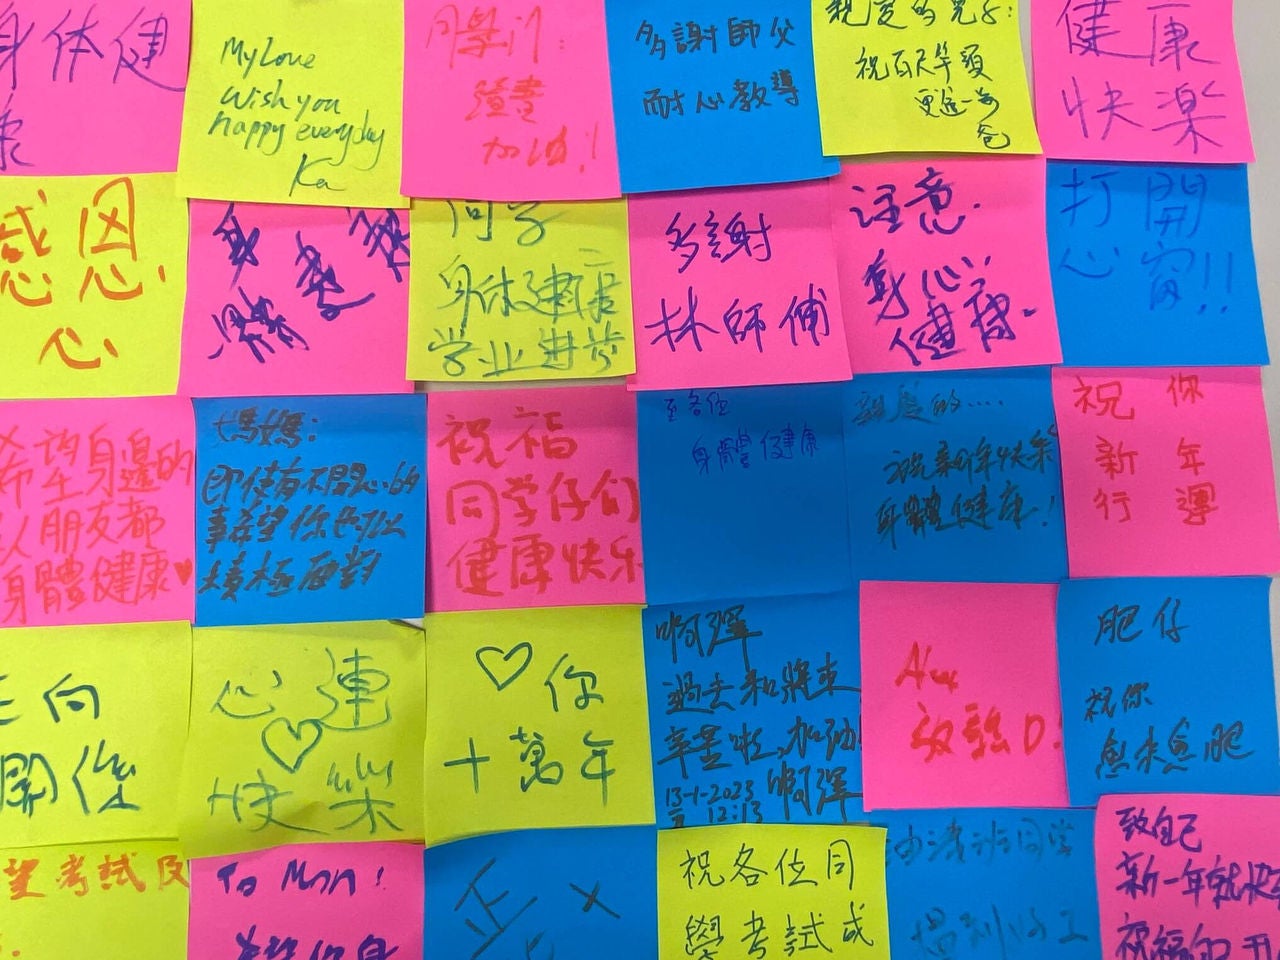 身体健
康
My Love
Wish you
happy everyday
Ka
同學们:
讀書
加油!!
多謝師父
耐心教導
親愛的兒子:
祝百尺竿頭
更進一步
爸
健康
快楽
感恩.
心
身
體健
同学
身体建康
学业进步
多謝
林師傅
注意.
身心
健康.
打開
心窗!!
希望身邊的
朋友都
身體健康♥
媽媽:
即使有不開心的
事希望你也可以
積極面對
祝福
同学仔们
健康快乐
至各位
身體健康
親愛的....
祝新年快樂
身體健康!
祝你
新年
行運
正向
關係
心連
♡
快樂
♡你
十萬年
啊輝
過去和將來
辛苦啦,加油!
13-1-2023 啊輝
12:13
Alex
放鬆D!
肥仔
祝你
愈來愈肥
望考試及
To Mon!
祝各位同
學考試成
班同学
致自己
新一年就快
祝福